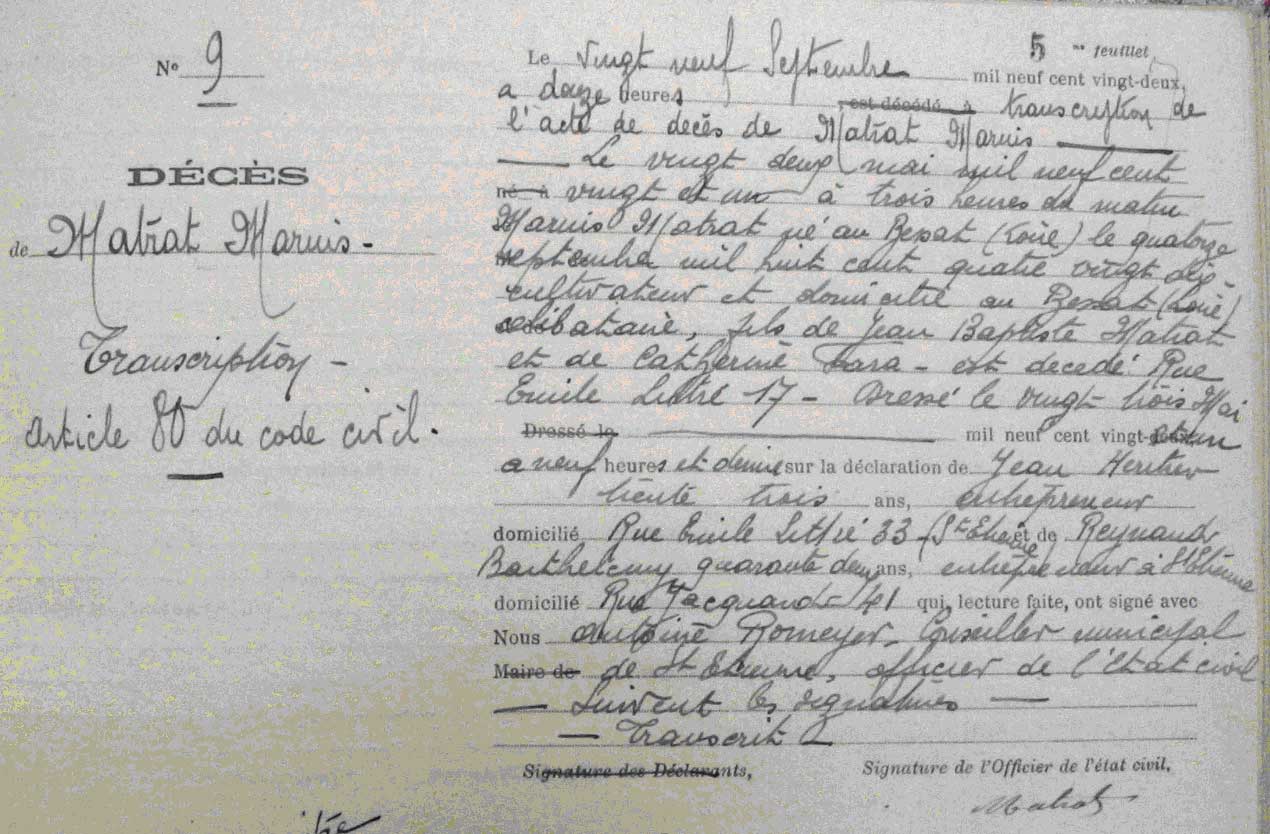 Nº 9
DÉCÈS
de Matrat Marius -
Transcription -
article 80 du code civil.
5 me feuillet
Le vingt neuf Septembre mil neuf cent vingt-deux,
a douze heures est décédé à transcription de
l'acte de decès de Matrat Marius
Le vingt deux mai mil neuf cent
né à vingt et un à trois heures du matin
Marius Matrat né au Bessat (Loire) le quatorze
septembre mil huit cent quatre vingt dix
cultivateur et domicilié au Bessat (Loire)
celibataire, fils de Jean Baptiste Matrat
et de Catherine Tara - est decedé Rue
Emile Littré 17 - Dressé le vingt trois Mai
Dressé le mil neuf cent vingt-et un
a neuf heures et demie sur la déclaration de Jean Heritier
trente trois ans, entrepreneur
domicilié Rue Emile Littré 33 - (St Etienne) et de Reynaud
Barthelemy quarante deux ans, entrepreneur à St Etienne
domicilié Rue Jacquard 41 qui, lecture faite, ont signé avec
Nous Antoine Romeyer, Conseiller municipal
Maire de de St Etienne, officier de l'Etat civil
Suivent les signatures
Transcrit
Signature des Déclarants, Signature de l'Officier de l'état civil,
Matrat